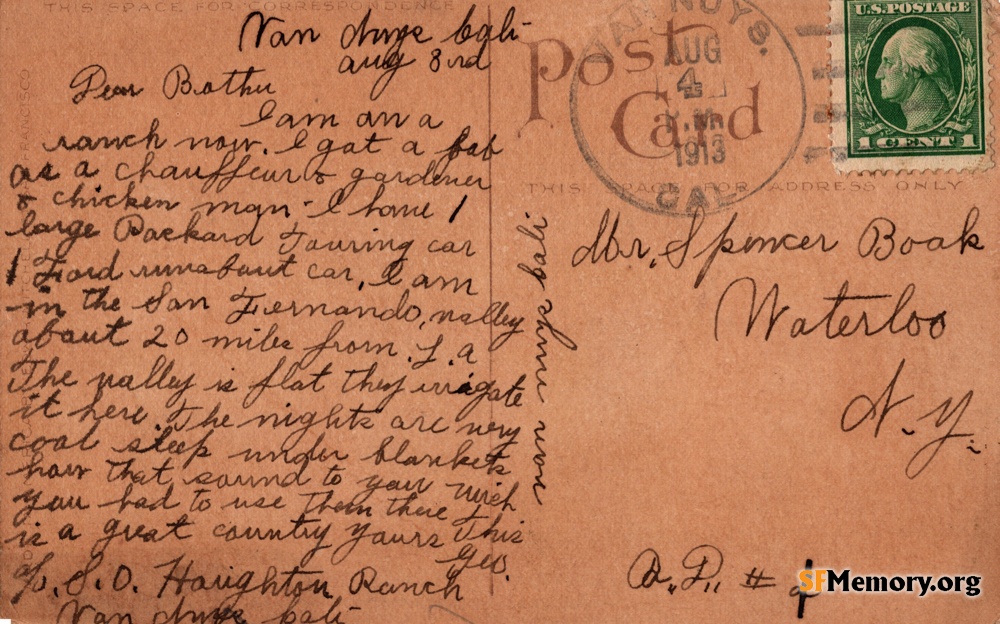 THIS SPACE FOR CORRESPONDENCE
Van Nuys Cali
Aug 3rd
Dear Brother
I am on a
ranch now. I got a job
as a chauffeur & gardener
& chicken man - I have 1
large Packard Touring car
1 Ford runabout car, I am
in the San Fernando, valley
about 20 miles from. L. A
The valley is flat they irrigate
it here. The nights are very
cool sleep under blankets
how that sound to you wish
you had to use them there This
is a great country yours
Geo.
c/o S. O. Houghton Ranch
Van Nuys Cali
Van Nuys Cali
Post
Card
VAN NUYS.
AUG
4
1913
CAL.
U.S. POSTAGE
1 CENT 1
THIS SPACE FOR ADDRESS ONLY
Mr. Spencer Boak
Waterloo
N. Y.
R. D. #
SFMemory.org